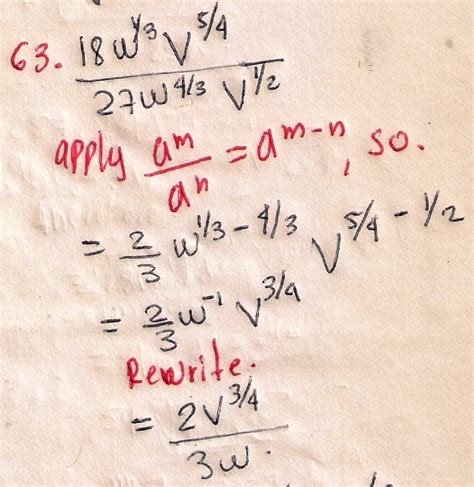 63. 18w^1/3 v^5/4 / 27w^4/3 v^1/2
apply a^m/a^n = a^m-n, so.
= 2/3 w^1/3 - 4/3 v^5/4 - 1/2
= 2/3 w^-1 v^3/4
Rewrite.
= 2v^3/4 / 3w.